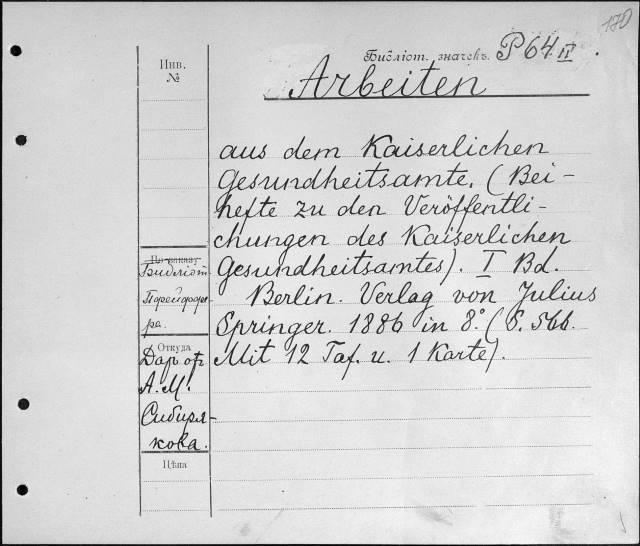 170
Библіот. значекъ. P 64 II.
Инв.
№
Arbeiten
aus dem Kaiserlichen
Gesundheitsamte. (Bei-
hefte zu den Veröffentli-
chungen des Kaiserlichen
Gesundheitsamtes). I Bd.
Berlin. Verlag von Julius
Springer. 1886 in 8° (S. 566.
Mit 12 Taf. u. 1 Karte).
По заказу
Библіот
Пфейффе-
ра.
Откуда
Даръ отъ
А. М.
Сибиря-
кова.
Цѣна